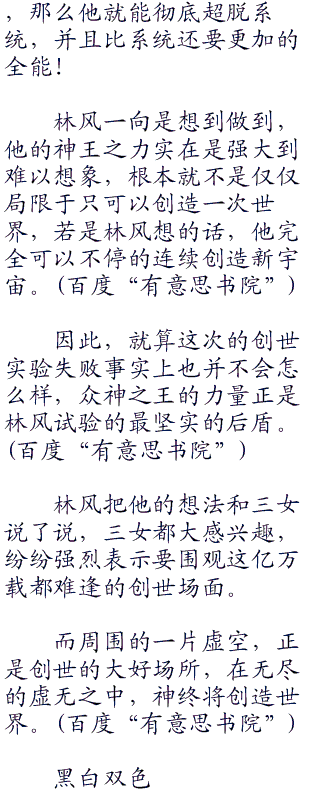 ，那么他就能彻底超脱系
统，并且比系统还要更加的
全能！
林风一向是想到做到，
他的神王之力实在是强大到
难以想象，根本就不是仅仅
局限于只可以创造一次世
界，若是林风想的话，他完
全可以不停的连续创造新宇
宙。(百度“有意思书院”)
因此，就算这次的创世
实验失败事实上也并不会怎
么样，众神之王的力量正是
林风试验的最坚实的后盾。
(百度“有意思书院”)
林风把他的想法和三女
说了说，三女都大感兴趣，
纷纷强烈表示要围观这亿万
载都难逢的创世场面。
而周围的一片虚空，正
是创世的大好场所，在无尽
的虚无之中，神终将创造世
界。(百度“有意思书院”)
黑白双色